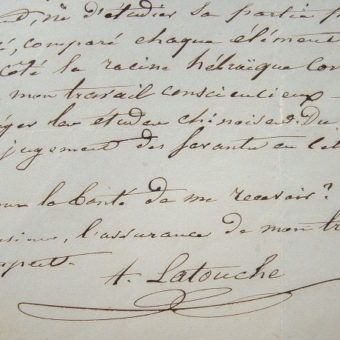 d'étudier sa partie
comparé chaque élément
côté la racine hébraïque
mon travail consciencieux
les études chinoises. Du
jugement des savants en
la bonté de me recevoir?
l'assurance de mon
A. Latouche